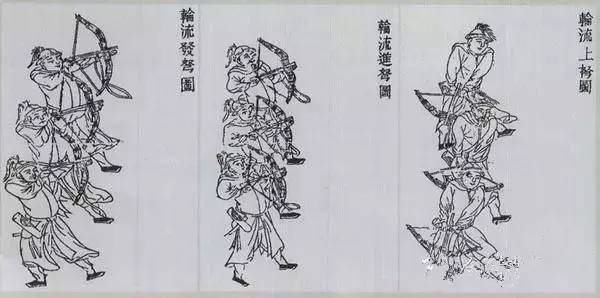 輪流上弩圖
輪流進弩圖
輪流發弩圖